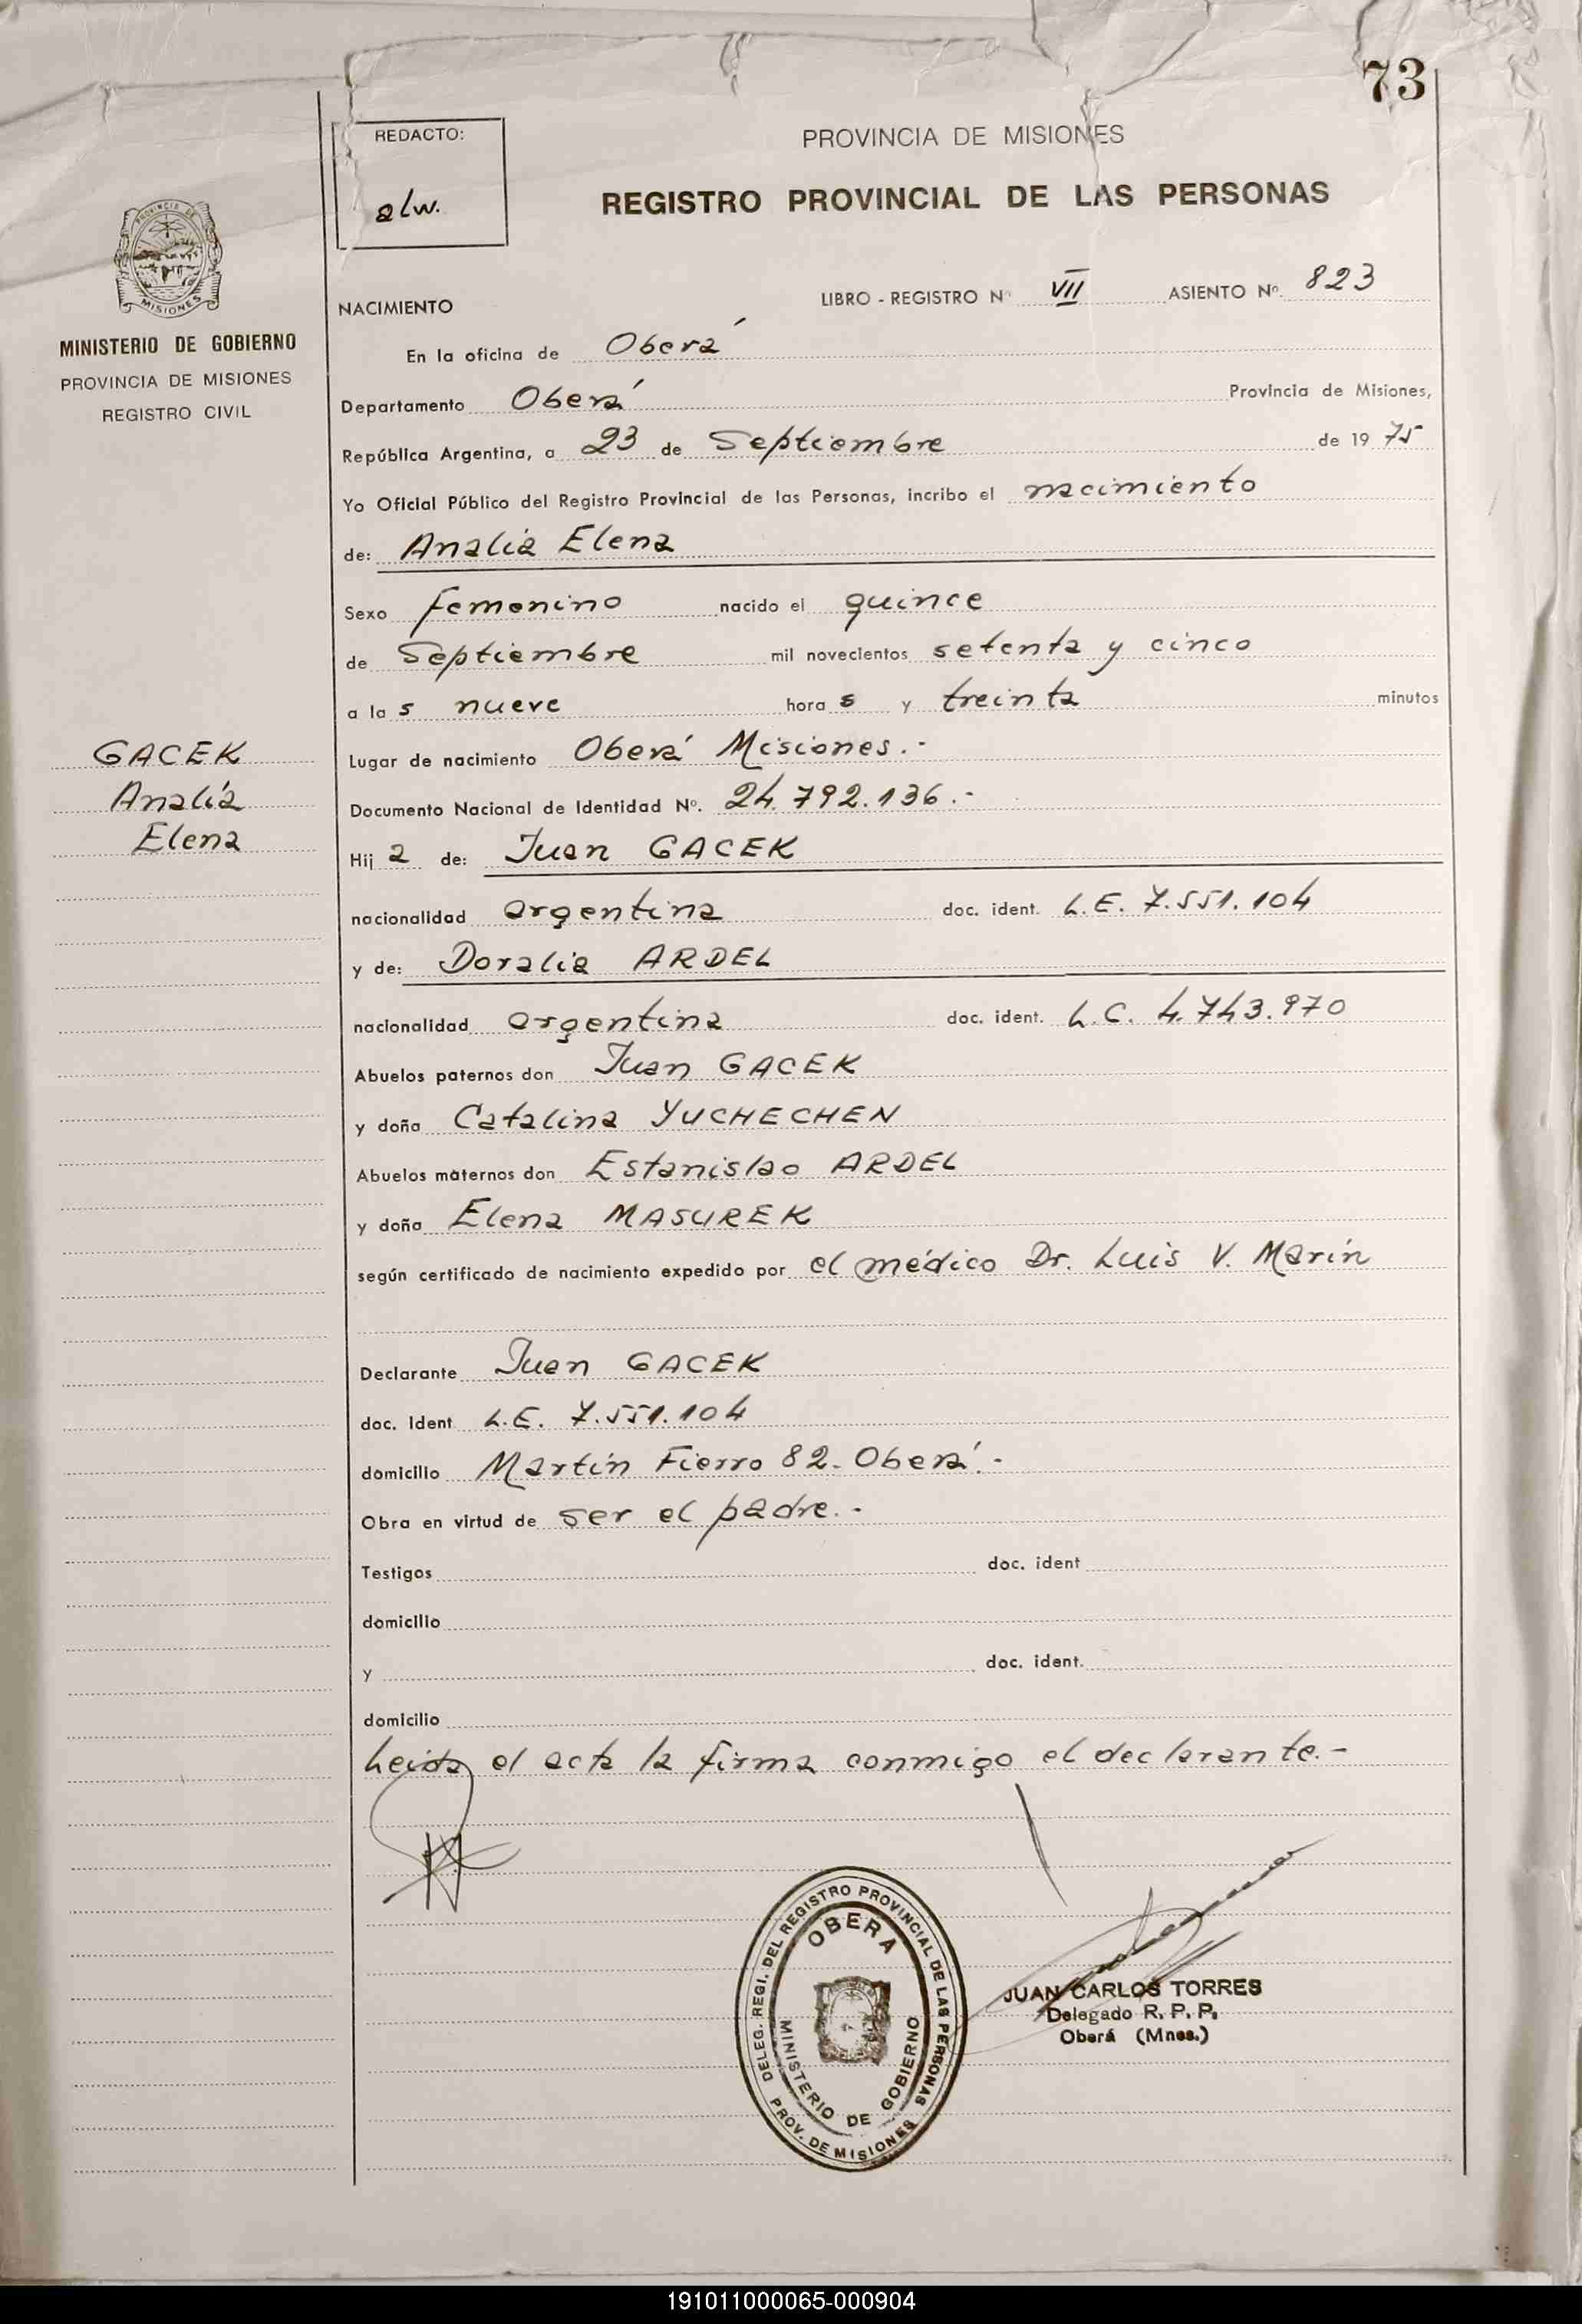 73
REDACTO:
alw.
PROVINCIA DE MISIONES
REGISTRO PROVINCIAL DE LAS PERSONAS
PROVINCIA DE
MISIONES
MINISTERIO DE GOBIERNO
PROVINCIA DE MISIONES
REGISTRO CIVIL
GACEK
Analía
Elena
NACIMIENTO LIBRO - REGISTRO Nº VII ASIENTO Nº. 823
En la oficina de Oberá
Departamento Oberá Provincia de Misiones,
República Argentina, a 23 de Septiembre de 19 75
Yo Oficial Público del Registro Provincial de las Personas, incribo el nacimiento
de: Analia Elena
Sexo femenino nacido el quince
de Septiembre mil novecientos setenta y cinco
a la s nueve hora s y treinta minutos
Lugar de nacimiento Oberá Misiones.-
Documento Nacional de Identidad Nº. 24.792.136.-
Hij a de: Juan GACEK
nacionalidad argentina doc. ident. L.E. 7.551.104
y de: Doralia ARDEL
nacionalidad argentina doc. ident. L.C. 4.743.970
Abuelos paternos don Juan GACEK
y doña Catalina YUCHECHEN
Abuelos maternos don Estanislao ARDEL
y doña Elena MASUREK
según certificado de nacimiento expedido por el médico Dr. Luis V. Marín
Declarante Juan GACEK
doc. Ident L.E. 7.551.104
domicilio Martín Fierro 82. Oberá.-
Obra en virtud de ser el padre.-
Testigos doc. ident
domicilio
y doc. ident.
domicilio
Leida el acta la firma conmigo el declarante.-
DELEG. REGI. DEL REGISTRO PROVINCIAL DE LAS PERSONAS
PROV. DE MISIONES
OBERA
MINISTERIO DE GOBIERNO
JUAN CARLOS TORRES
Delegado R. P. P.
Oberá (Mnes.)
191011000065-000904